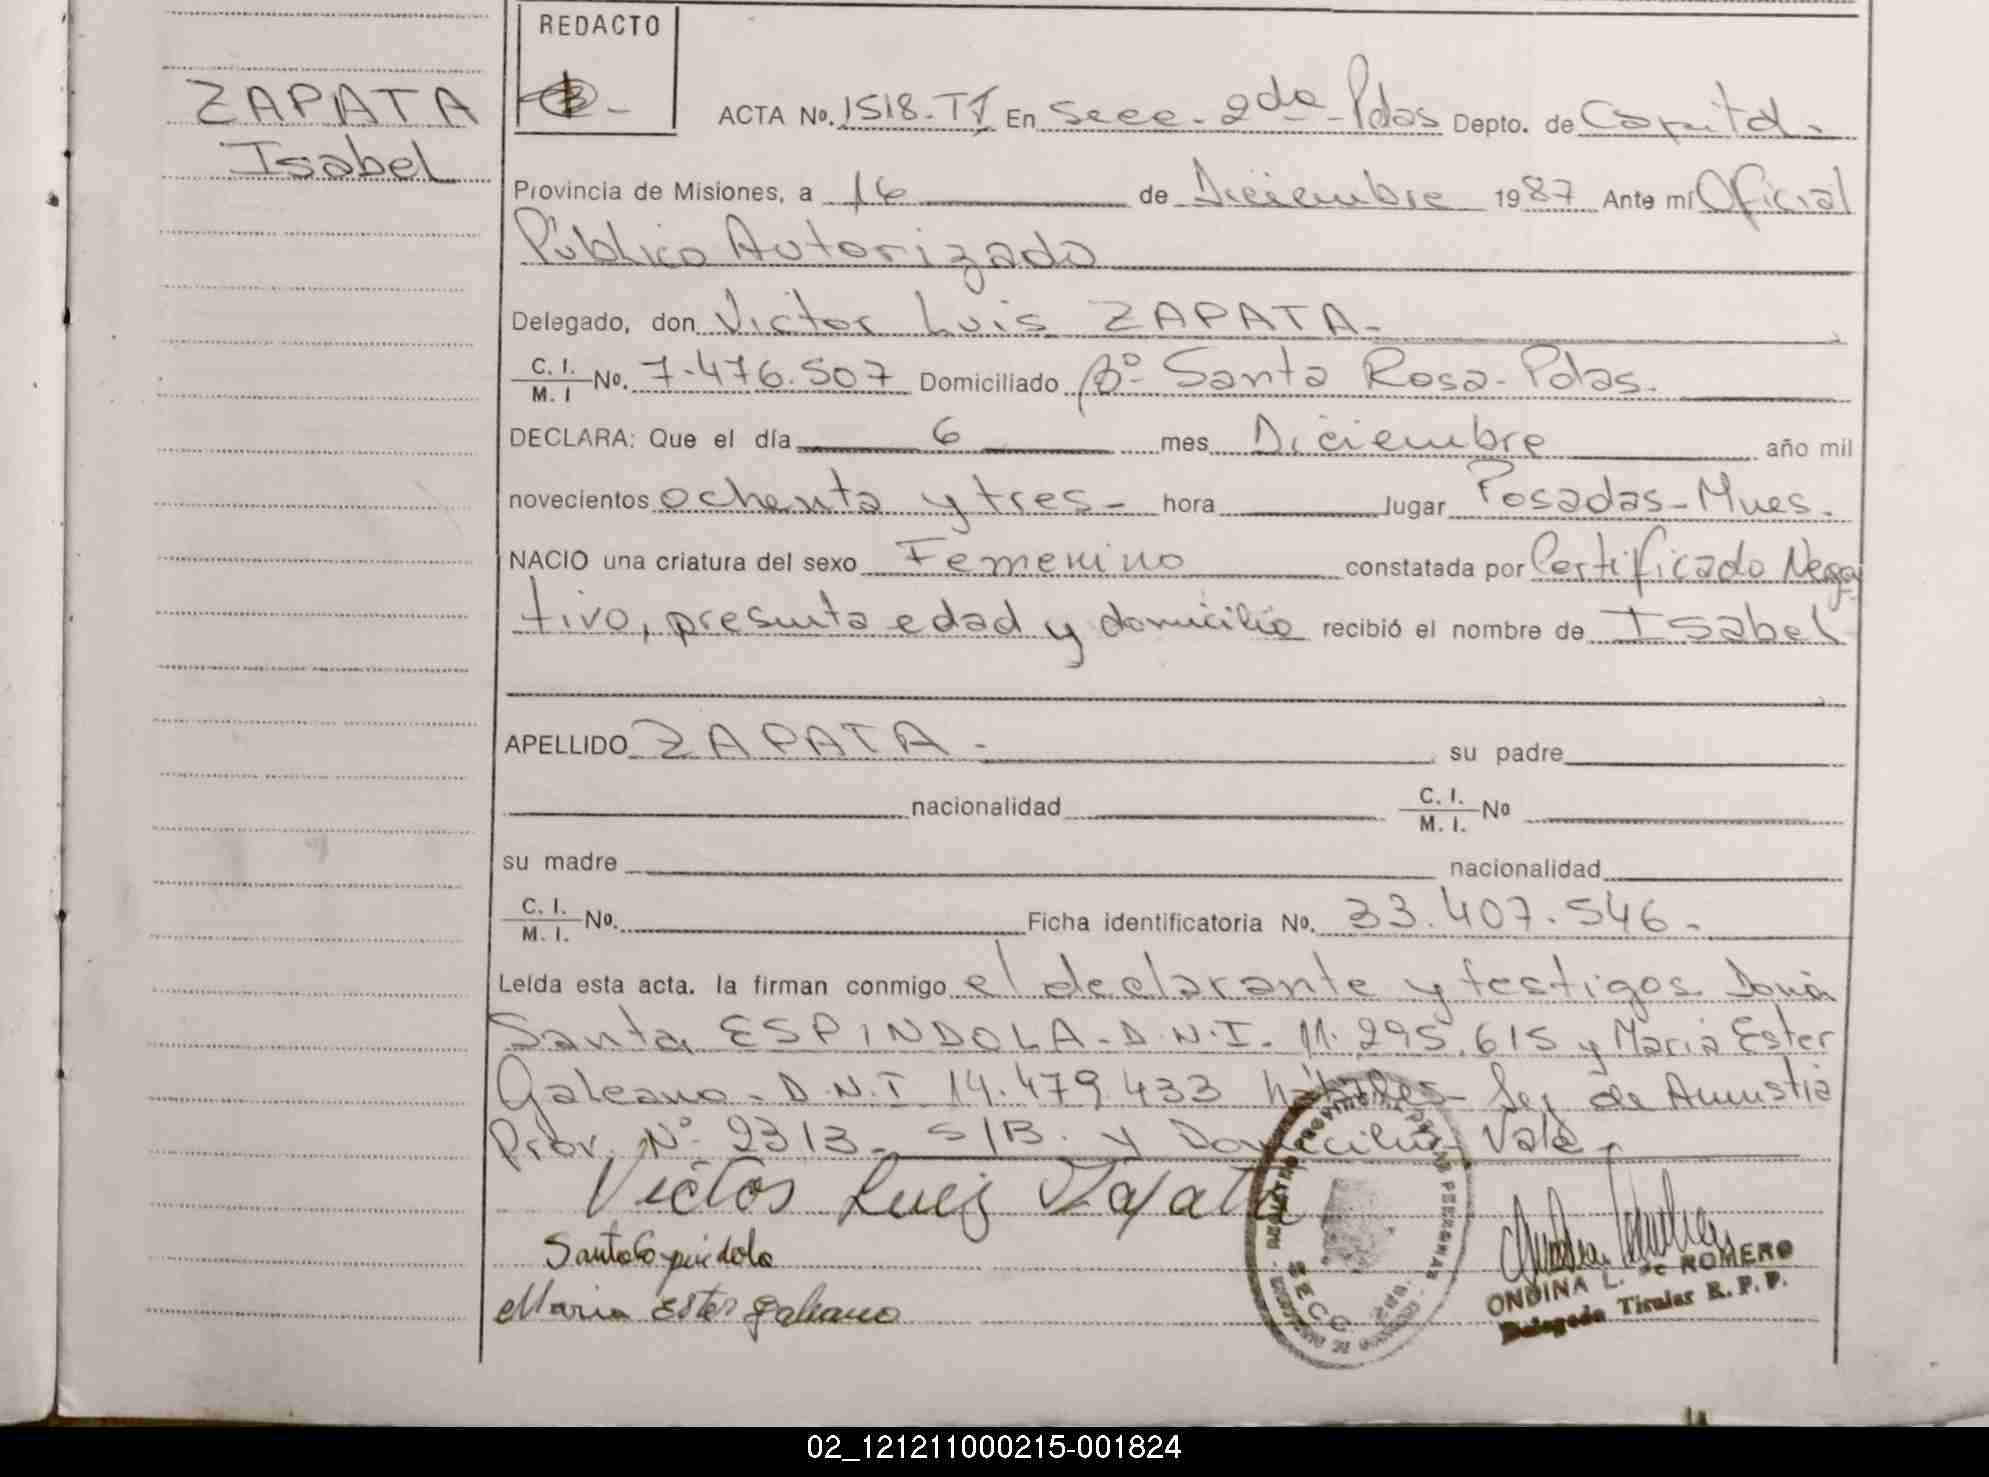 REDACTO
ZAPATA
Isabel
ACTA Nº. 1518-TI En Secc. 2da Pdas Depto. de Capital.
Provincia de Misiones, a 16 de Diciembre 1987 Ante mí Oficial
Público Autorizado
Delegado, don Victor Luis ZAPATA-
C. I. / M. I Nº. 7.476.507 Domiciliado Bº Santa Rosa-Pdas.
DECLARA: Que el día 6 mes Diciembre año mil
novecientos ochenta y tres- hora lugar Posadas-Mnes.
NACIO una criatura del sexo Femenino constatada por Certificado Nega
tivo, presunta edad y domicilio recibió el nombre de Isabel
APELLIDO ZAPATA- su padre
nacionalidad C. I. / M. I. Nº
su madre nacionalidad
C. I. / M. I. Nº. Ficha identificatoria Nº. 33.407.546-
Leída esta acta. la firman conmigo el declarante y testigos Doña
Santa ESPINDOLA-D.N.I. 11.295.615 y María Ester
Galeano-D.N.I 14.479.433 hábiles- Ley de Amnistia
Prov. Nº 2313- S/B. y Domicilio- Vale-
Victor Luis Zapata
Santa Espindola
Maria Ester Galeano
REGISTRO PROVINCIAL DE LAS PERSONAS
SECC. 2da.
ONDINA L. de ROMERO
Delegada Titular R. P. P.
02_121211000215-001824